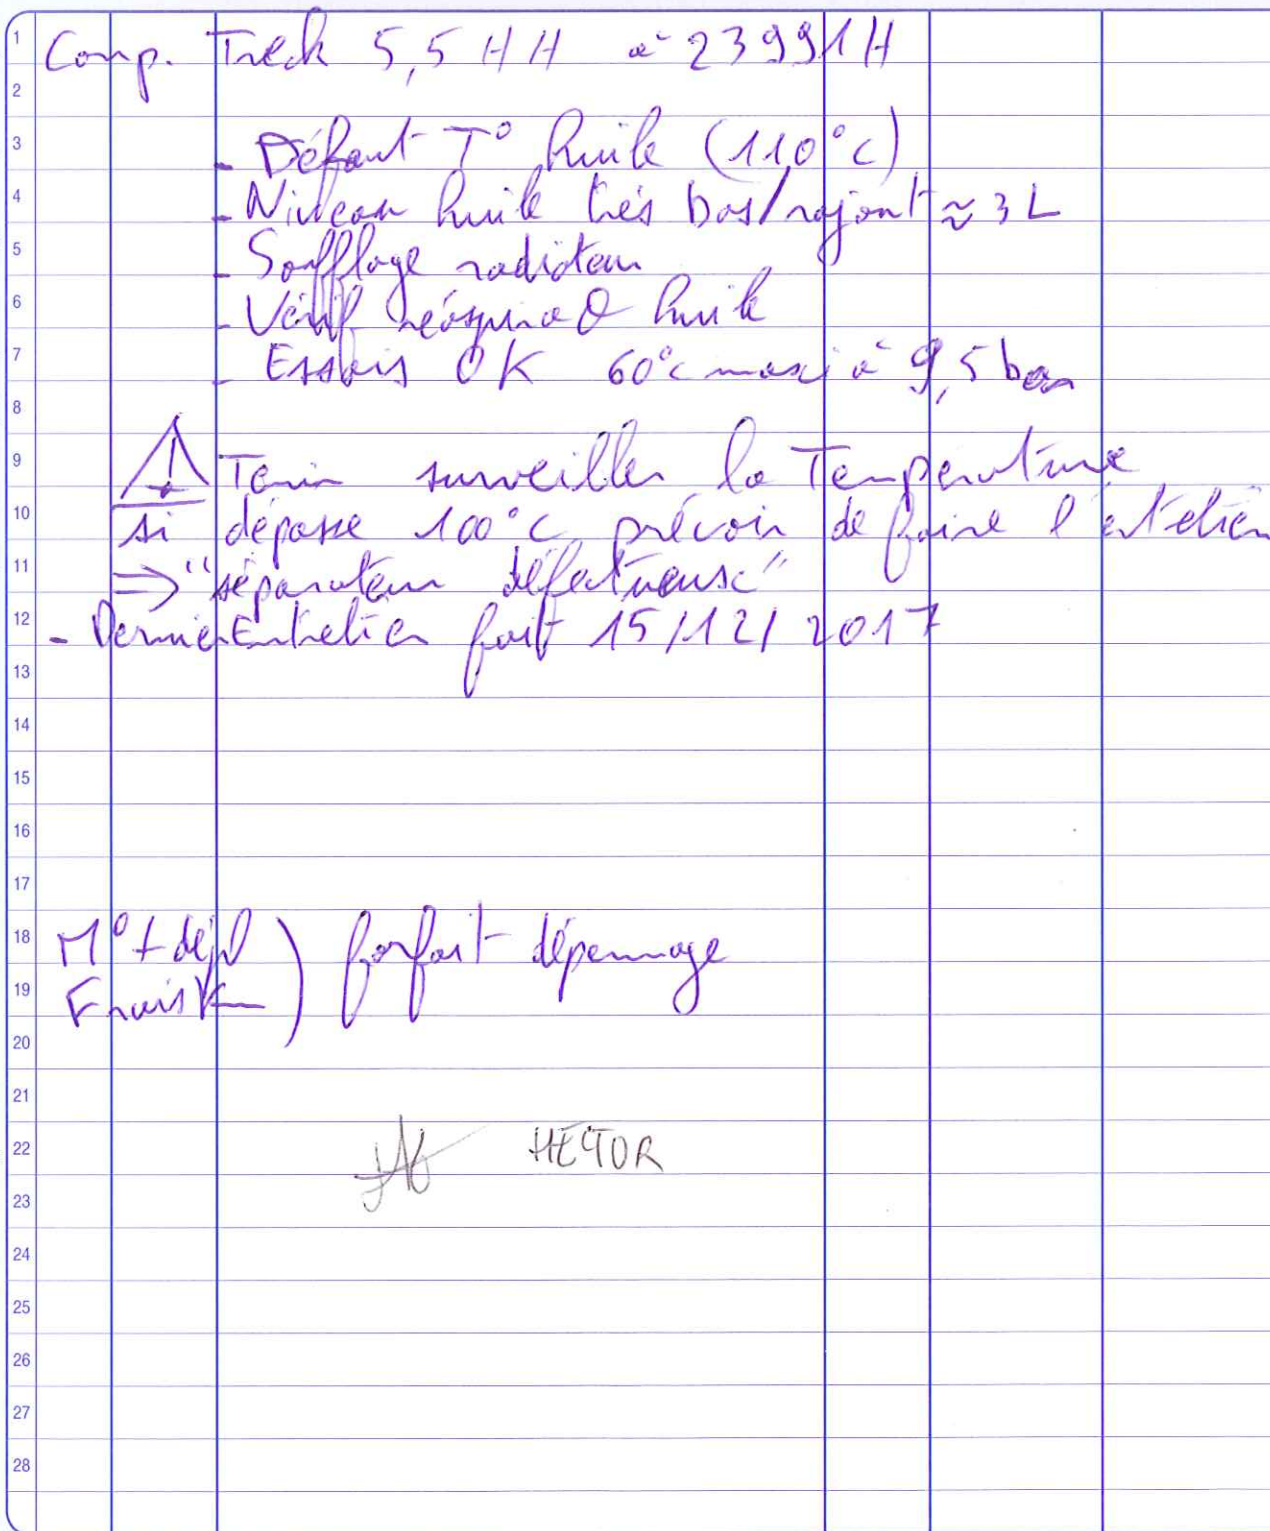 1 Comp. Treck 5,5 HH à 23991H
2
3 - Défaut T° huile (110°c)
4 - Niveau huile très bas/rajout ≈ 3 L
5 - Soufflage radiateur
6 - Vérif réaspira° huile
7 - Essais OK 60°c maxi à 9,5 bar
8
9 ⚠ Tenir surveiller la Température
10 si dépasse 100°C prévoir de faire l'entretien
11 => "séparateur défectueuse"
12 - Dernier Entretien fait 15/12/2017
13
14
15
16
17
18 M° + dépl ) forfait dépannage
19 Frais Km
20
21
22 HECTOR
23
24
25
26
27
28